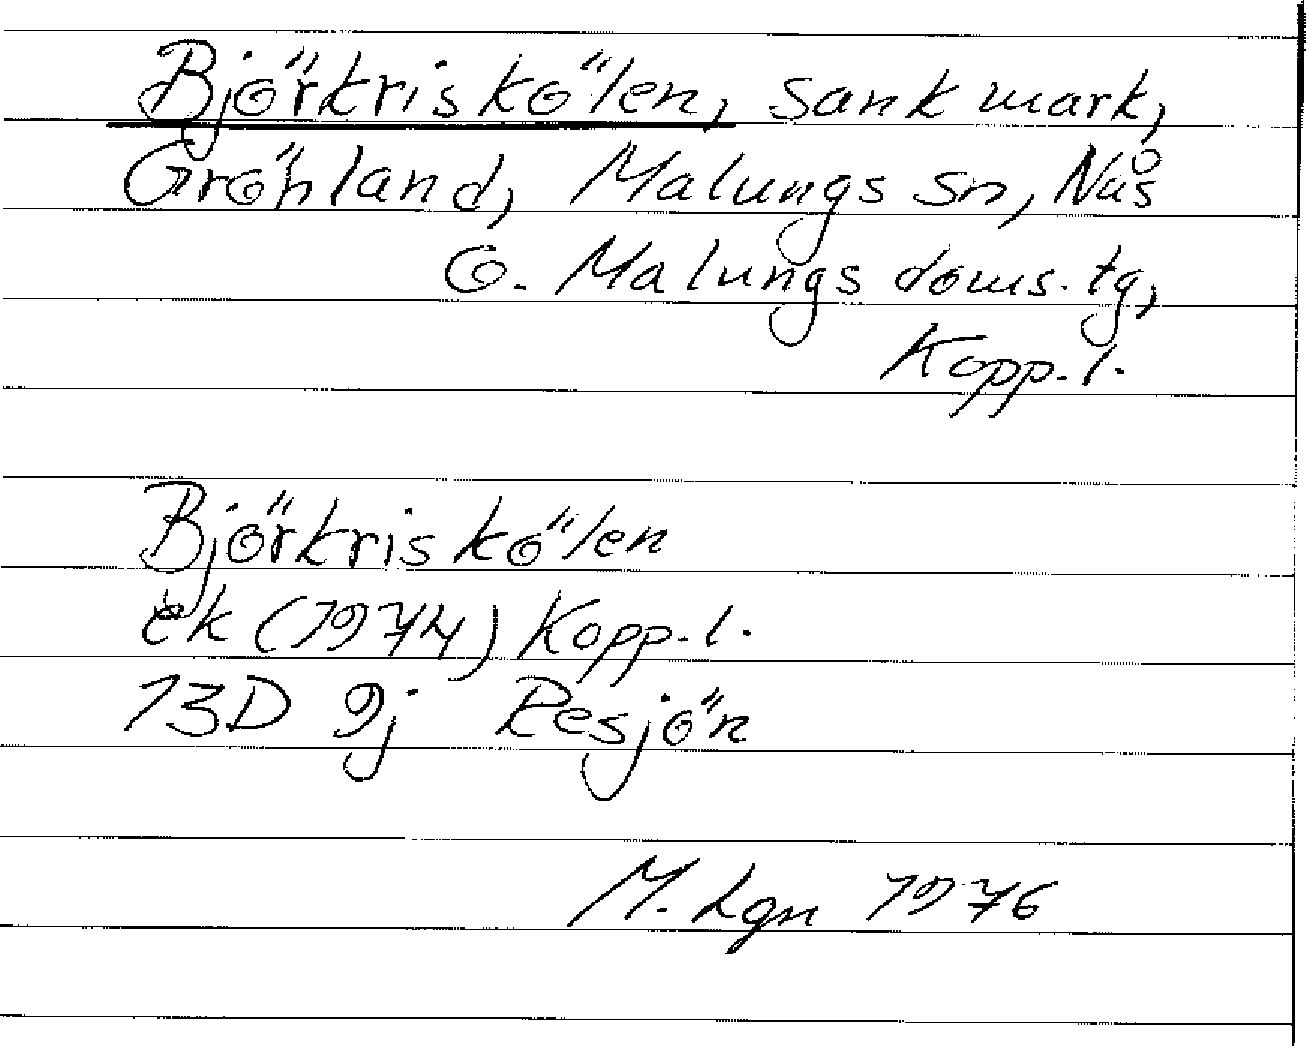 Björkriskölen, sank mark,
Gröhland, Malungs sn, Nås
o. Malungs doms. tg,
Kopp. l.
Björkriskölen
ek (1974) Kopp. l.
13D 9j Resjön
M. Lgn 1976